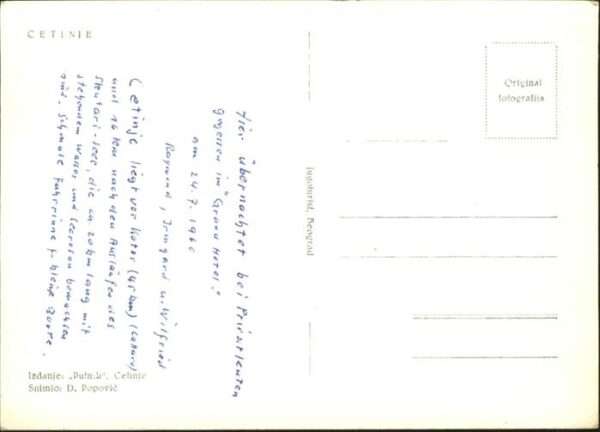 CETINJE
Original
fotografija
Jugoturist, Beograd
Hier übernachtet bei Privatleuten
gegessen im "Grand Hotel."
am 24.7.196
Raymund, Irmgard u. Wilfried
Cetinje liegt vor Kotor (45 km) (Cattaro)
und 16 km nach den Ausläufen des
Skutari-Sees, die ca 20 km lang mit
stehendem Wasser und Seerosen bewachsen
sind. Schmale Fahrrinne f. kleine Boote.
Izdanje: „Putnik", Cetinje
Snimio: D. Popović